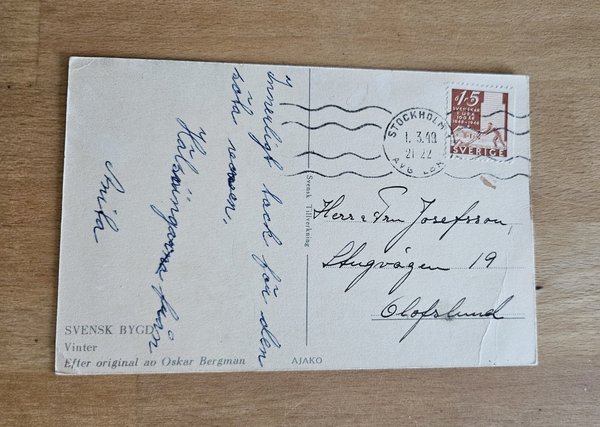 Innerligt tack för den
söta
från
Anita
SVENSK BYGD
Vinter
Efter original av Oskar Bergman
Svensk Tillverkning
AJAKO
STOCKHOLM
1.3.49
21-22
AVG
15
SVENSKAR
I USA
100 ÅR
1848-1948
SVERIGE
Herr o Fru Josefsson,
Stugvägen 19
Olofslund